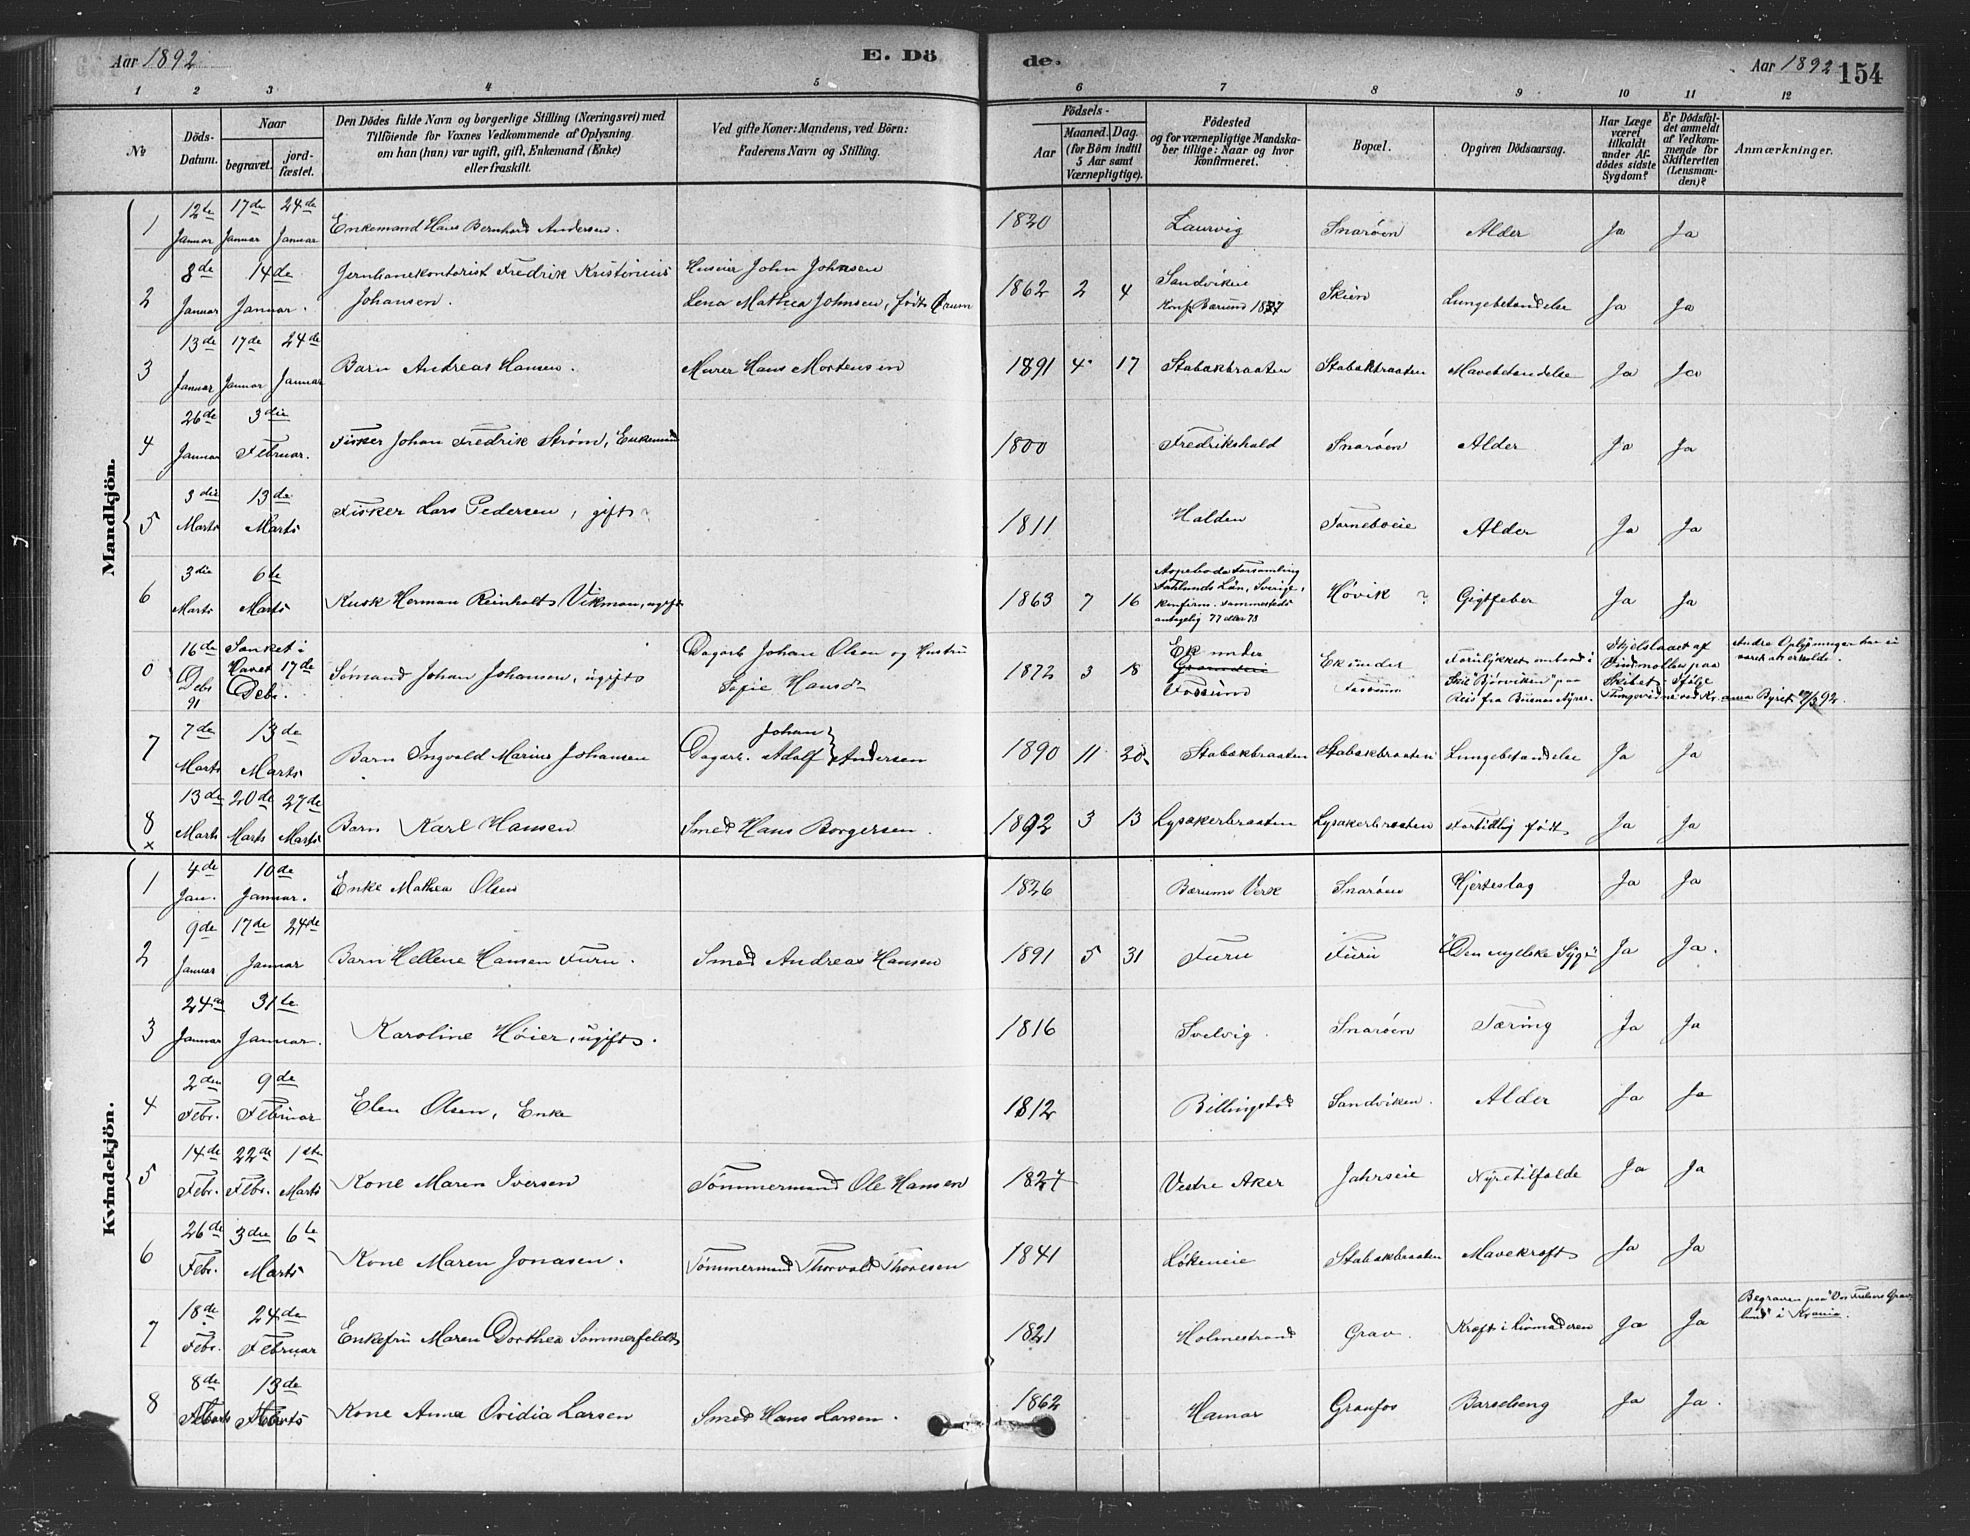 Aar 1892 E. Dö de. Aar 1892 154
1 2 3 4 5 6 7 8 9 10 11 12
№ Döds-Datum. Naar begravet. jordfæstet. Den Dödes fulde Navn og borgerlige Stilling (Næringsvei) med Tilföiende for Voxnes Vedkommende af Oplysning om han (hun) var ugift, gift, Enkemand (Enke) eller fraskilt. Ved gifte Koner: Mandens, ved Börn: Faderens Navn og Stilling. Födsels- Aar Maaned. Dag. (for Börn indtil 5 Aar samt Værnepligtige). Födested og for værnepligtige Mandskaber tillige: Naar og hvor konfirmeret. Bopæl. Opgiven Dödsaarsag. Har Læge været tilkaldt under Afdödes sidste Sygdom? Er Dödsfaldet anmeldt af Vedkommende for Skifteretten (Lensmanden)? Anmærkninger.
Mandkjön.
1 12te Januar 17de Januar 24de Januar Enkemand Hans Bernhard Andersen. 1820 Laurvig Snarøen Alder Ja Ja
2 8de Januar 14de Januar. Jernbanekontorist Fredrik Kristinius Johansen. Huseier John Johnsen Lena Mathea Johnsen, født 1862 2 4 Sandviken Konf. Bærum 1877 Skien Lungebetændelse Ja Ja
3 13de Januar 17de Januar 24de Januar Barn Andreas Hansen. Murer Hans Mortensen 1891 4 17 Stabækbraaten Stabækbraaten Mavebetændelse Ja Ja
4 26de Januar 3die Februar. Fisker Johan Fredrik Strøm, Enkemand 1800 Fredrikshald Snarøen Alder Ja Ja
5 3die Marts 13de Marts Fisker Lars Pedersen, gift? 1811 Halden Forneboeie Alder Ja Ja
6 3die Marts 6te Marts Kusk Herman Reinholt Vikman, ugift 1863 7 16 Forsamling Län, Sverige, konfirm. sammesteds antagelig 77 eller 78 Høvik ? Gigtfeber Ja Ja
0 16de Debr 91 Sænket i Havet 17de Debr. Sømand Johan Johansen, ugift Dagarb. Johan Olsen og Hustru Sofie Hansdr. 1872 3 8 Ek under Fossum Ek under Fossum Forulykket ombord i Skib "Bjørviken" paa Reis fra Buenos Ayres. Skjelslaaet af paa Skibet ifølge Tingsvidne ved Kr.ania Byret /3 92. Andre Oplysninger har ei været at erholde.
7 7de Marts 13de Marts Barn Ingvald Marius Johansen Dagarb. Johan Adolf Andersen 1890 11 20 Stabækbraaten Stabækbraaten Lungebetændelse Ja Ja
8 x 13de Marts 20de Marts 27de Marts Barn Karl Hansen Smed Hans Borgersen. 1892 3 13 Lysakerbraaten Lysakerbraaten Fortidlig født Ja Ja
Kvindekjön.
1 4de Jan. 10de Januar. Enke Mathea Olsen 1826 Bærums Verk Snarøen Hjerteslag Ja Ja
2 9de Januar 17de 24de Januar Barn Hellene Hansen Furu. Smed Andreas Hansen 1891 5 31 Furu Furu "Den engelske Syge" Ja Ja.
3 24de Januar 31te Januar. Karoline Høier, ugift. 1816 Svelvig. Snarøen Tæring Ja Ja
4 2den Febr. 9de Februar Elen Olsen, Enke 1812 Billingstad Sandviken. Alder Ja Ja
5 14de Febr. 22de Febr. 1ste Marts Kone Maren Iversen Tømmermand Ole Hansen 1827 Vestre Aker Jahrseie Nyretilfælde Ja Ja
6 26de Febr. 3die 6te Marts Kone Maren Jonasen. Tømmermand Thorvald Thoresen 1841 Løkeneie Stabækbraaten Mavekræft Ja Ja
7 18de Febr. 24de Februar Enkefru Maren Dorthea Sommerfeldt 1821 Holmestrand Grav. Kræft i Livmoderen Ja Ja Begraven paa "Vor Frelsers Gravlund" i Krania.
8 8de Marts 13de Marts Kone Anna Ovidia Larsen Smed Hans Larsen. 1862 Hamar Granfos Barselseng Ja Ja.